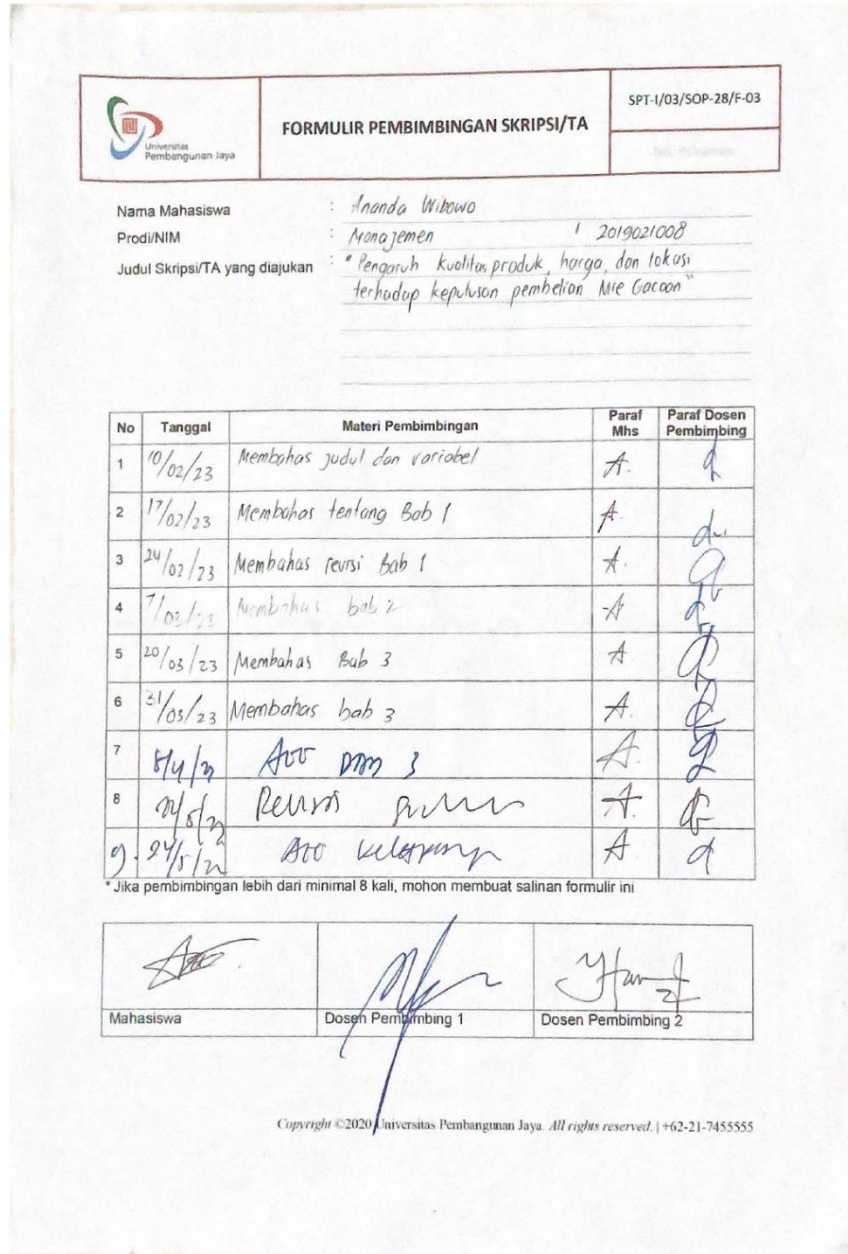 Universitas
Pembangunan Jaya
FORMULIR PEMBIMBINGAN SKRIPSI/TA
SPT-I/03/SOP-28/F-03
Nama Mahasiswa : Ananda Wibowo
Prodi/NIM : Manajemen / 2019021008
Judul Skripsi/TA yang diajukan : "Pengaruh kualitas produk, harga, dan lokasi
terhadap keputusan pembelian Mie Gacoan"
No Tanggal Materi Pembimbingan Paraf Mhs Paraf Dosen Pembimbing
1 10/02/23 Membahas judul dan variabel A.
2 17/02/23 Membahas tentang Bab 1 A.
3 24/02/23 Membahas revisi Bab 1 A.
4 7/03/23 Membahas bab 2 A
5 20/03/23 Membahas Bab 3 A
6 31/03/23 Membahas bab 3 A.
7 3 A.
8 Revisi A.
9. A
* Jika pembimbingan lebih dari minimal 8 kali, mohon membuat salinan formulir ini
Mahasiswa Dosen Pembimbing 1 Dosen Pembimbing 2
Copyright ©2020 Universitas Pembangunan Jaya. All rights reserved. | +62-21-7455555